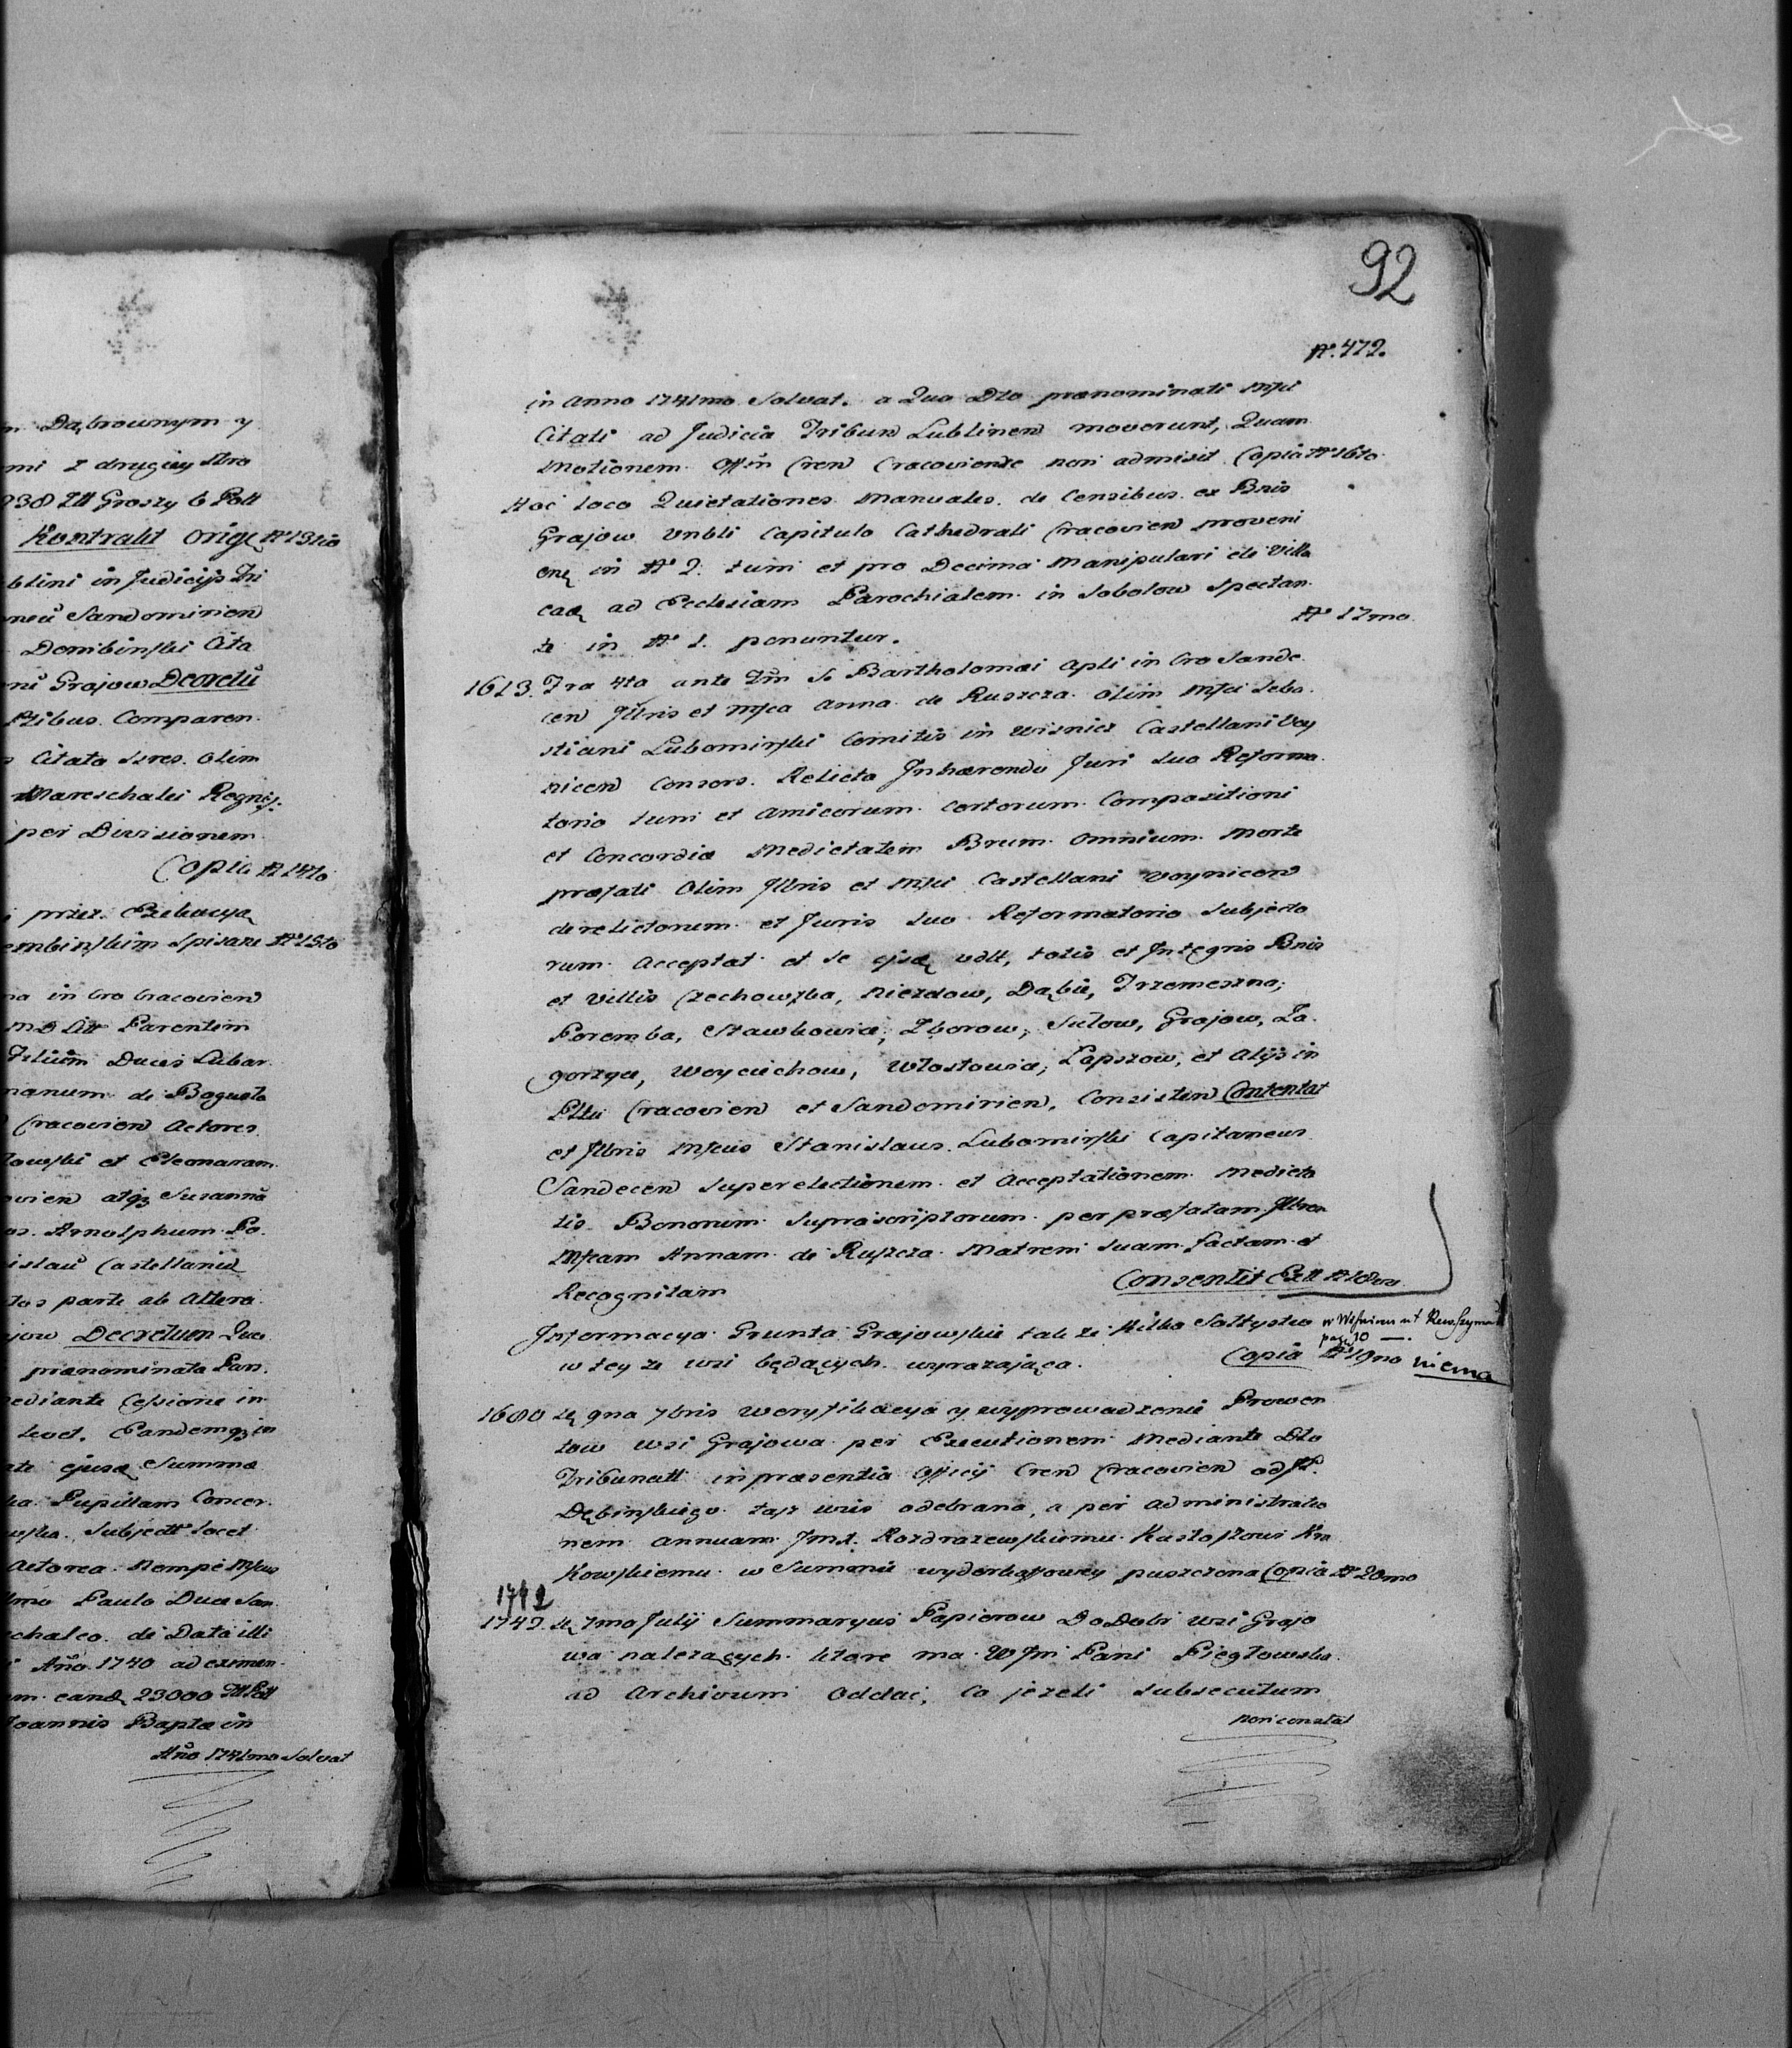 n Dąbrownym y
mi z drugiey stro
938 Zll Groszy 6 Poll
Kontrakt Orige N° 13tio
blini in Judicijs Tri
Sandomirien
Dembinski Cita
Grajow Decretū
Ptibus Comparen
Citata Olim
Mareschalci Regni
per Divisionem
Copia N° 14to
przez
embinskim spisane N° 15to
na in Cro Cracovien
Parentem
Filium Ducis Lubar
manum de Bogusla
Cracovien Actores
towski et Eleonaram
ovien atq3 Susannā
os. Arnolphum Po.
islaū Castellanid
tos parte ab Altera
jow Decretum Quo
prænominata Pan.
mediante Cessione in
Eandemq3 in
ate ejusd Summæ
ka Pupillam Concer.
wska. Subjectt locet
Actorea Nempe Mfcus
Paulo Duce San
schalco de Data illi
Año 1740 ad eximen
m eand 23000 Zll Poll
Joannis Baptæ in
Año 1741mo Solvat
92
N°. 472.
in Anno 1741mo Solvat. a Quo Dto prænominati Mfci
Citati ad Judicia Tribun Lublinen moverunt, Quam
Motionem Offm Cren Cracoviense non admisit Copia N° 16to
Hoc loco Quietationes Manuales de Censibus ex Bnis
Grajow Vnbli Capitulo Cathedrali Cracovien proveni
en in N° 2. tum et pro Decima Manipulari de Villa
ead ad Ecclesiam Parochialem in Sobolow Spectan
te in N° 1. ponuntur.
N° 17mo
1613. Fra 4ta ante Fm S. Bartholomæi Apli in Cro Sande
cen Jllris et Mfca Anna de Ruszcza Olim Mfci Seba
stiani Lubomirski Comitis in Wisnicz Castellani Voy
nicen Consors Relicta Jnhærendo Juri suo Reforma
torio tum et Amicorum Certorum Compositioni
et Concordiæ Medietatem Brum Omnium Morte
præfati Olim Jllris et Mfci Castellani Voynicen
derelictorum et Juris suo Reformatorio Subjecto
rum Acceptat et se ejsd vdlt, totis et Integris Bnis
et Villis Czechowska, Niezdow, Dąbie, Trzemeszna,
Poremba, Stawkowice, Zborow, Sulow, Grajow, Za
gorzye, Woyciechow, Włostowice, Lapszow, et Alijs in
Pttu Cracovien et Sandomirien, Consisten Contentat
et Jllris Mfcus Stanislaus Lubomirski Capitaneus
Sandecen Super electionem et Acceptationem Medieta
tis Bonorum Suprascriptorum per præfatam Jllren
Mfcam Annam de Ruszcza Matrem Suam factam et
Recognitam
Consentit Extt N° 18vo
Jnformacya Grunta Grajowskie tak ze Kilka Sołtystw
w tey ze wsi będących wyrazająca.
pag 10 —.
Copia N° 19no niema
1680 d 9na 7bris Weryfikacya y wyprowadzenie Prowen
tow wsi Grajowa per Executionem Mediante Dto
Tribunatt in præsentia Officij Cren Cracovien od JP.
Dębinskiego tasz wies odebrana, a per Administratio
nem annuam Jmt. Rozdrazewskiemu Kustoszowi Kra
kowskiemu w Summie wyderkaffowey puszczona Copia N° 20mo
1742
1742. d 7mo Julij Summaryusz Papierow Do Dobr wsi Grajo
wa nalezących ktore ma WJm Pani Piegłowska
ad Archivum Oddac, Co jezeli subsecutum
non constat